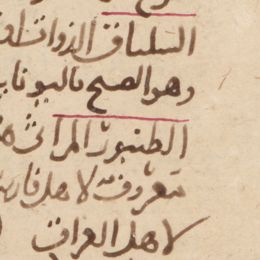 السلباق الذوات او
وهو الصنج باليونا
الطنبور المراثى
معروفة لاهل فارس
لاهل العراق